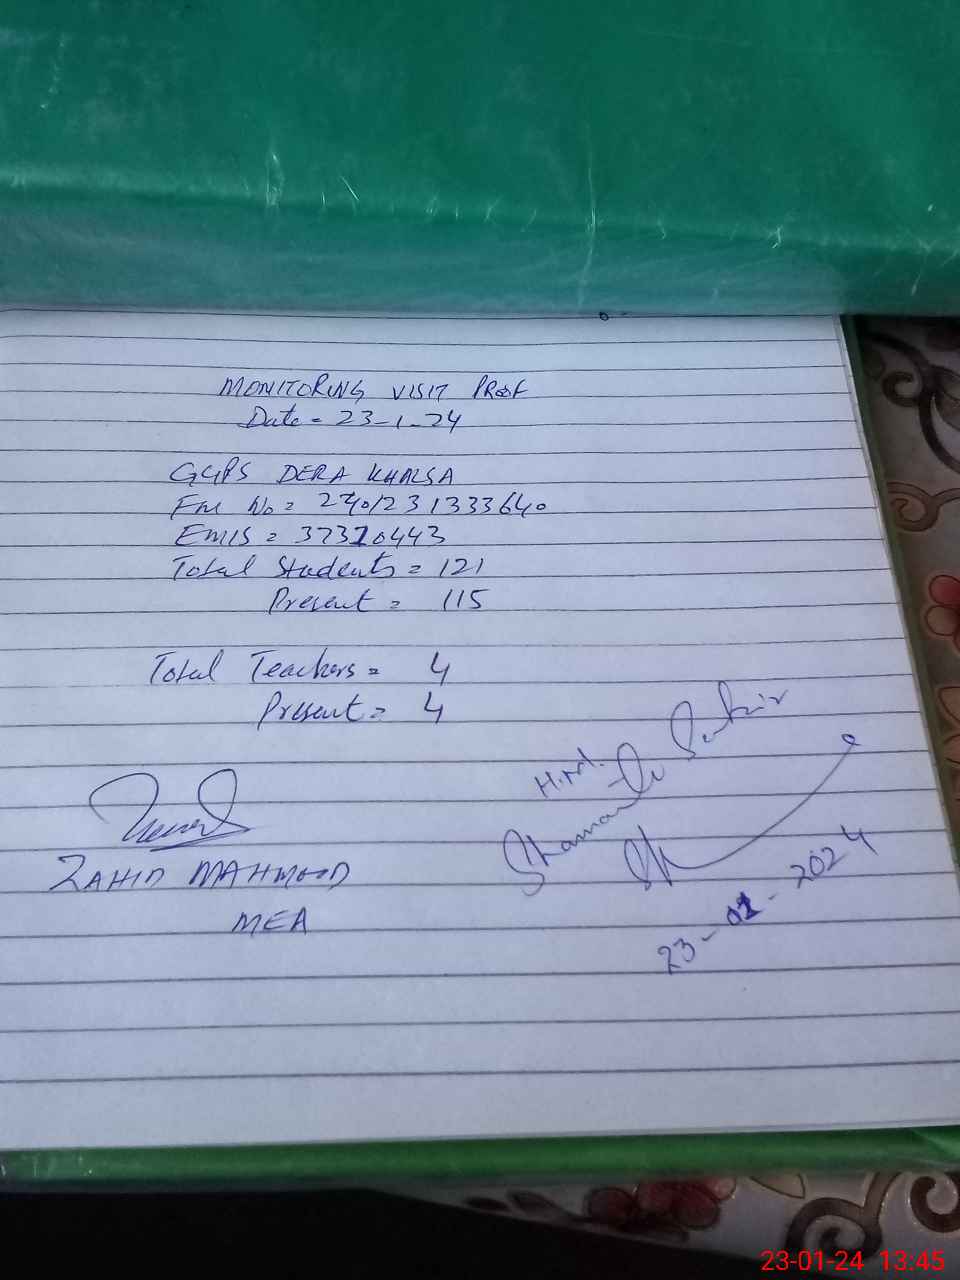 MONITORING VISIT PROOF
Date = 23-1-24
GGPS DERA KHALSA
Fm No = 2401231333640
EMIS = 37310443
Total Students = 121
Present = 115
Total Teachers = 4
Present = 4
H.M.
ZAHID MAHMOOD
MEA
23-01-2024
23-01-24 13:45